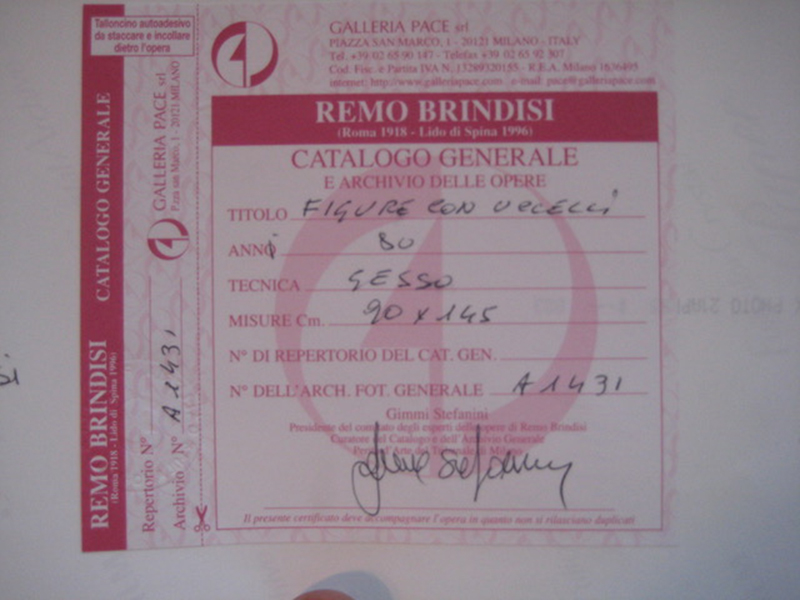 Talloncino autoadesivo
da staccare e incollare
dietro l'opera
REMO BRINDISI CATALOGO GENERALE
(Roma 1918 - Lido di Spina 1996)
GALLERIA PACE srl
P.zza san Marco, 1 - 20121 MILANO
Repertorio N°
Archivio N° A1431
GALLERIA PACE srl
PIAZZA SAN MARCO, 1 - 20121 MILANO - ITALY
Tel. +39 02 65 90 147 - Telefax +39 02 65 92 307
Cod. Fisc. e Partita IVA N. 13289320155 - R.E.A. Milano 1636495
internet: http://www.galleriapace.com e-mail: pace@galleriapace.com
REMO BRINDISI
(Roma 1918 - Lido di Spina 1996)
CATALOGO GENERALE
E ARCHIVIO DELLE OPERE
TITOLO FIGURE CON UCCELLI
ANNI 80
TECNICA GESSO
MISURE Cm. 90 x 145
N° DI REPERTORIO DEL CAT. GEN.
N° DELL'ARCH. FOT. GENERALE A1431
Gimmi Stefanini
Presidente del comitato degli esperti delle opere di Remo Brindisi
Curatore del Catalogo e dell'Archivio Generale
Perito d'Arte del Tribunale di Milano
Il presente certificato deve accompagnare l'opera in quanto non si rilasciano duplicati